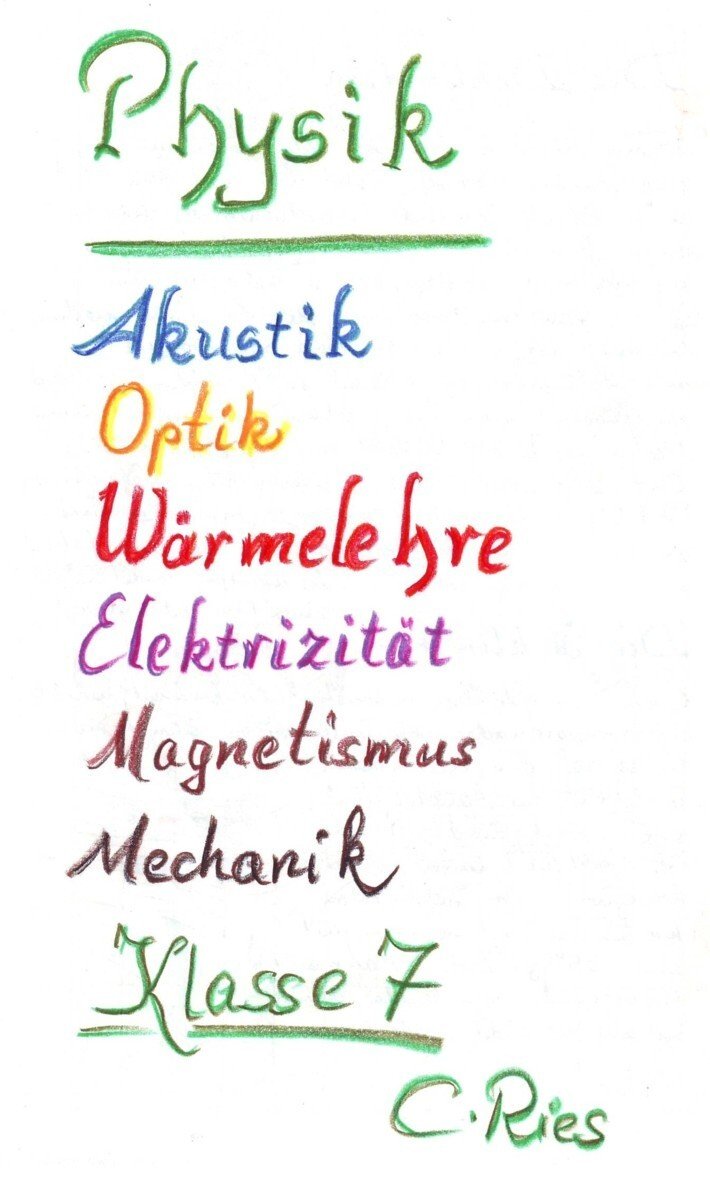 Physik
Akustik
Optik
Wärmelehre
Elektrizität
Magnetismus
Mechanik
Klasse 7
C. Ries